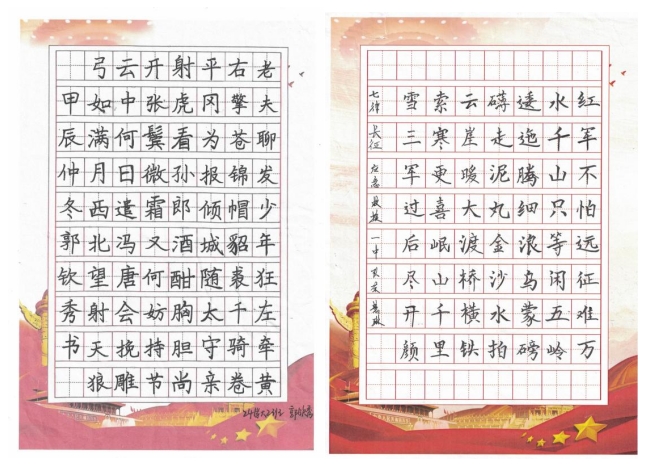 老夫聊发少年狂左牵黄
右擎苍锦帽貂裘千骑卷
平冈为报倾城随太守亲
射虎看孙郎酒酣胸胆尚
开张鬓微霜又何妨持节
云中何日遣冯唐会挽雕
弓如满月西北望射天狼
甲辰仲冬郭钦秀书
红军不怕远征难万
水千山只等闲五岭
逶迤腾细浪乌蒙磅
礴走泥丸金沙水拍
云崖暖大渡桥横铁
索寒更喜岷山千里
雪三军过后尽开颜
七律长征